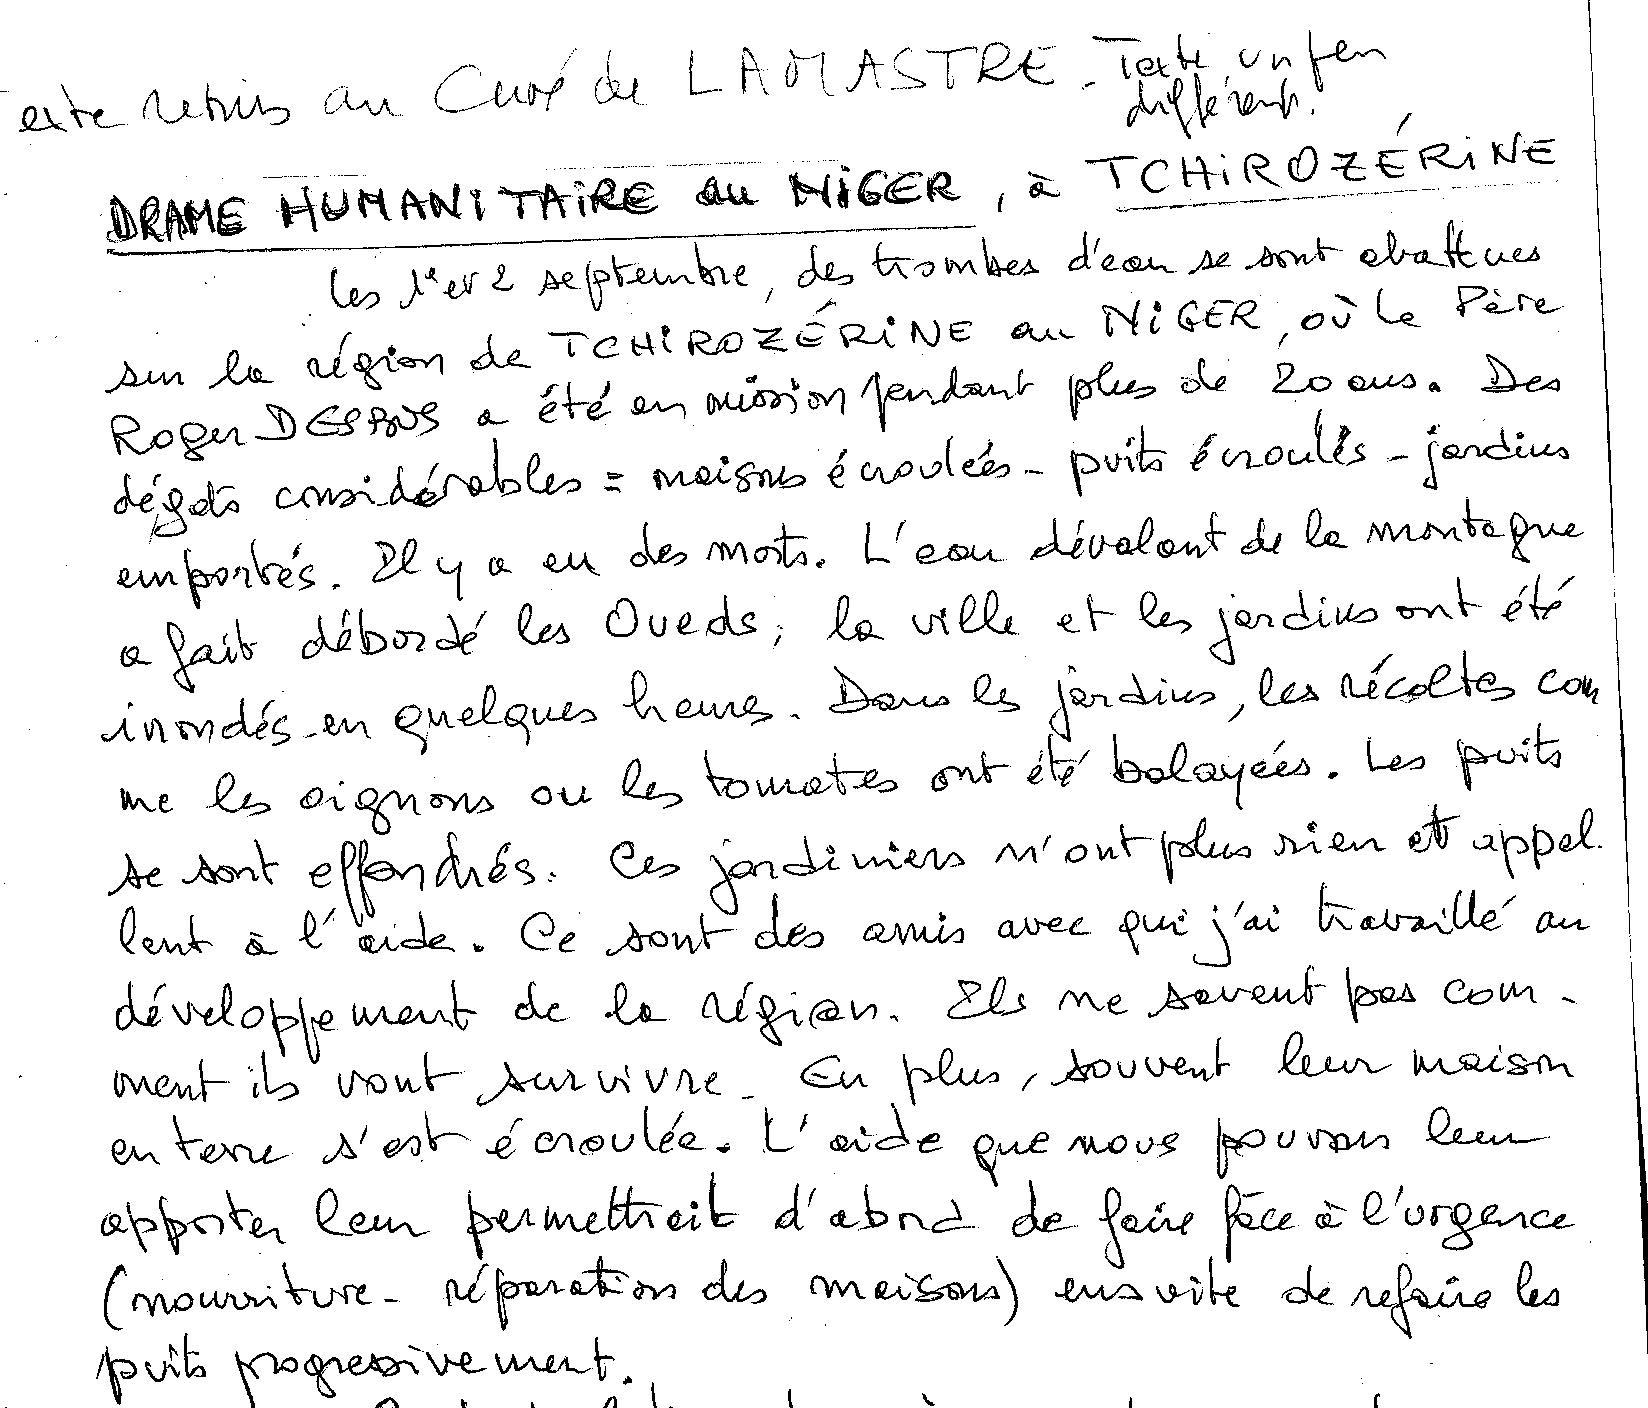 exte remis au Curé de LAMASTRE. Texte un peu
différent.
DRAME HUMANITAIRE au NIGER, à TCHIROZÉRINE
Les 1er et 2 septembre, des trombes d'eau se sont abattues
sur la région de TCHIROZÉRINE au NIGER, où le Père
Roger DESPAUS a été en mission pendant plus de 20 ans. Des
dégats considérables = maisons écroulées - puits écroulés - jardins
emportés. Il y a eu des morts. L'eau dévalant de la montagne
a fait débordé les Oueds ; la ville et les jardins ont été
inondés en quelques heures. Dans les jardins, les récoltes com
me les oignons ou les tomates ont été balayées. Les puits
se sont effondrés. Ces jardiniers n'ont plus rien et appel.
lent à l'aide. Ce sont des amis avec qui j'ai travaillé au
développement de la région. Ils ne savent pas com-
ment ils vont survivre. En plus, souvent leur maison
en terre s'est écroulée. L'aide que nous pouvons leur
apporter leur permettrait d'abord de faire face à l'urgence
(nourriture - réparation des maisons) ensuite de refaire les
puits progressivement.